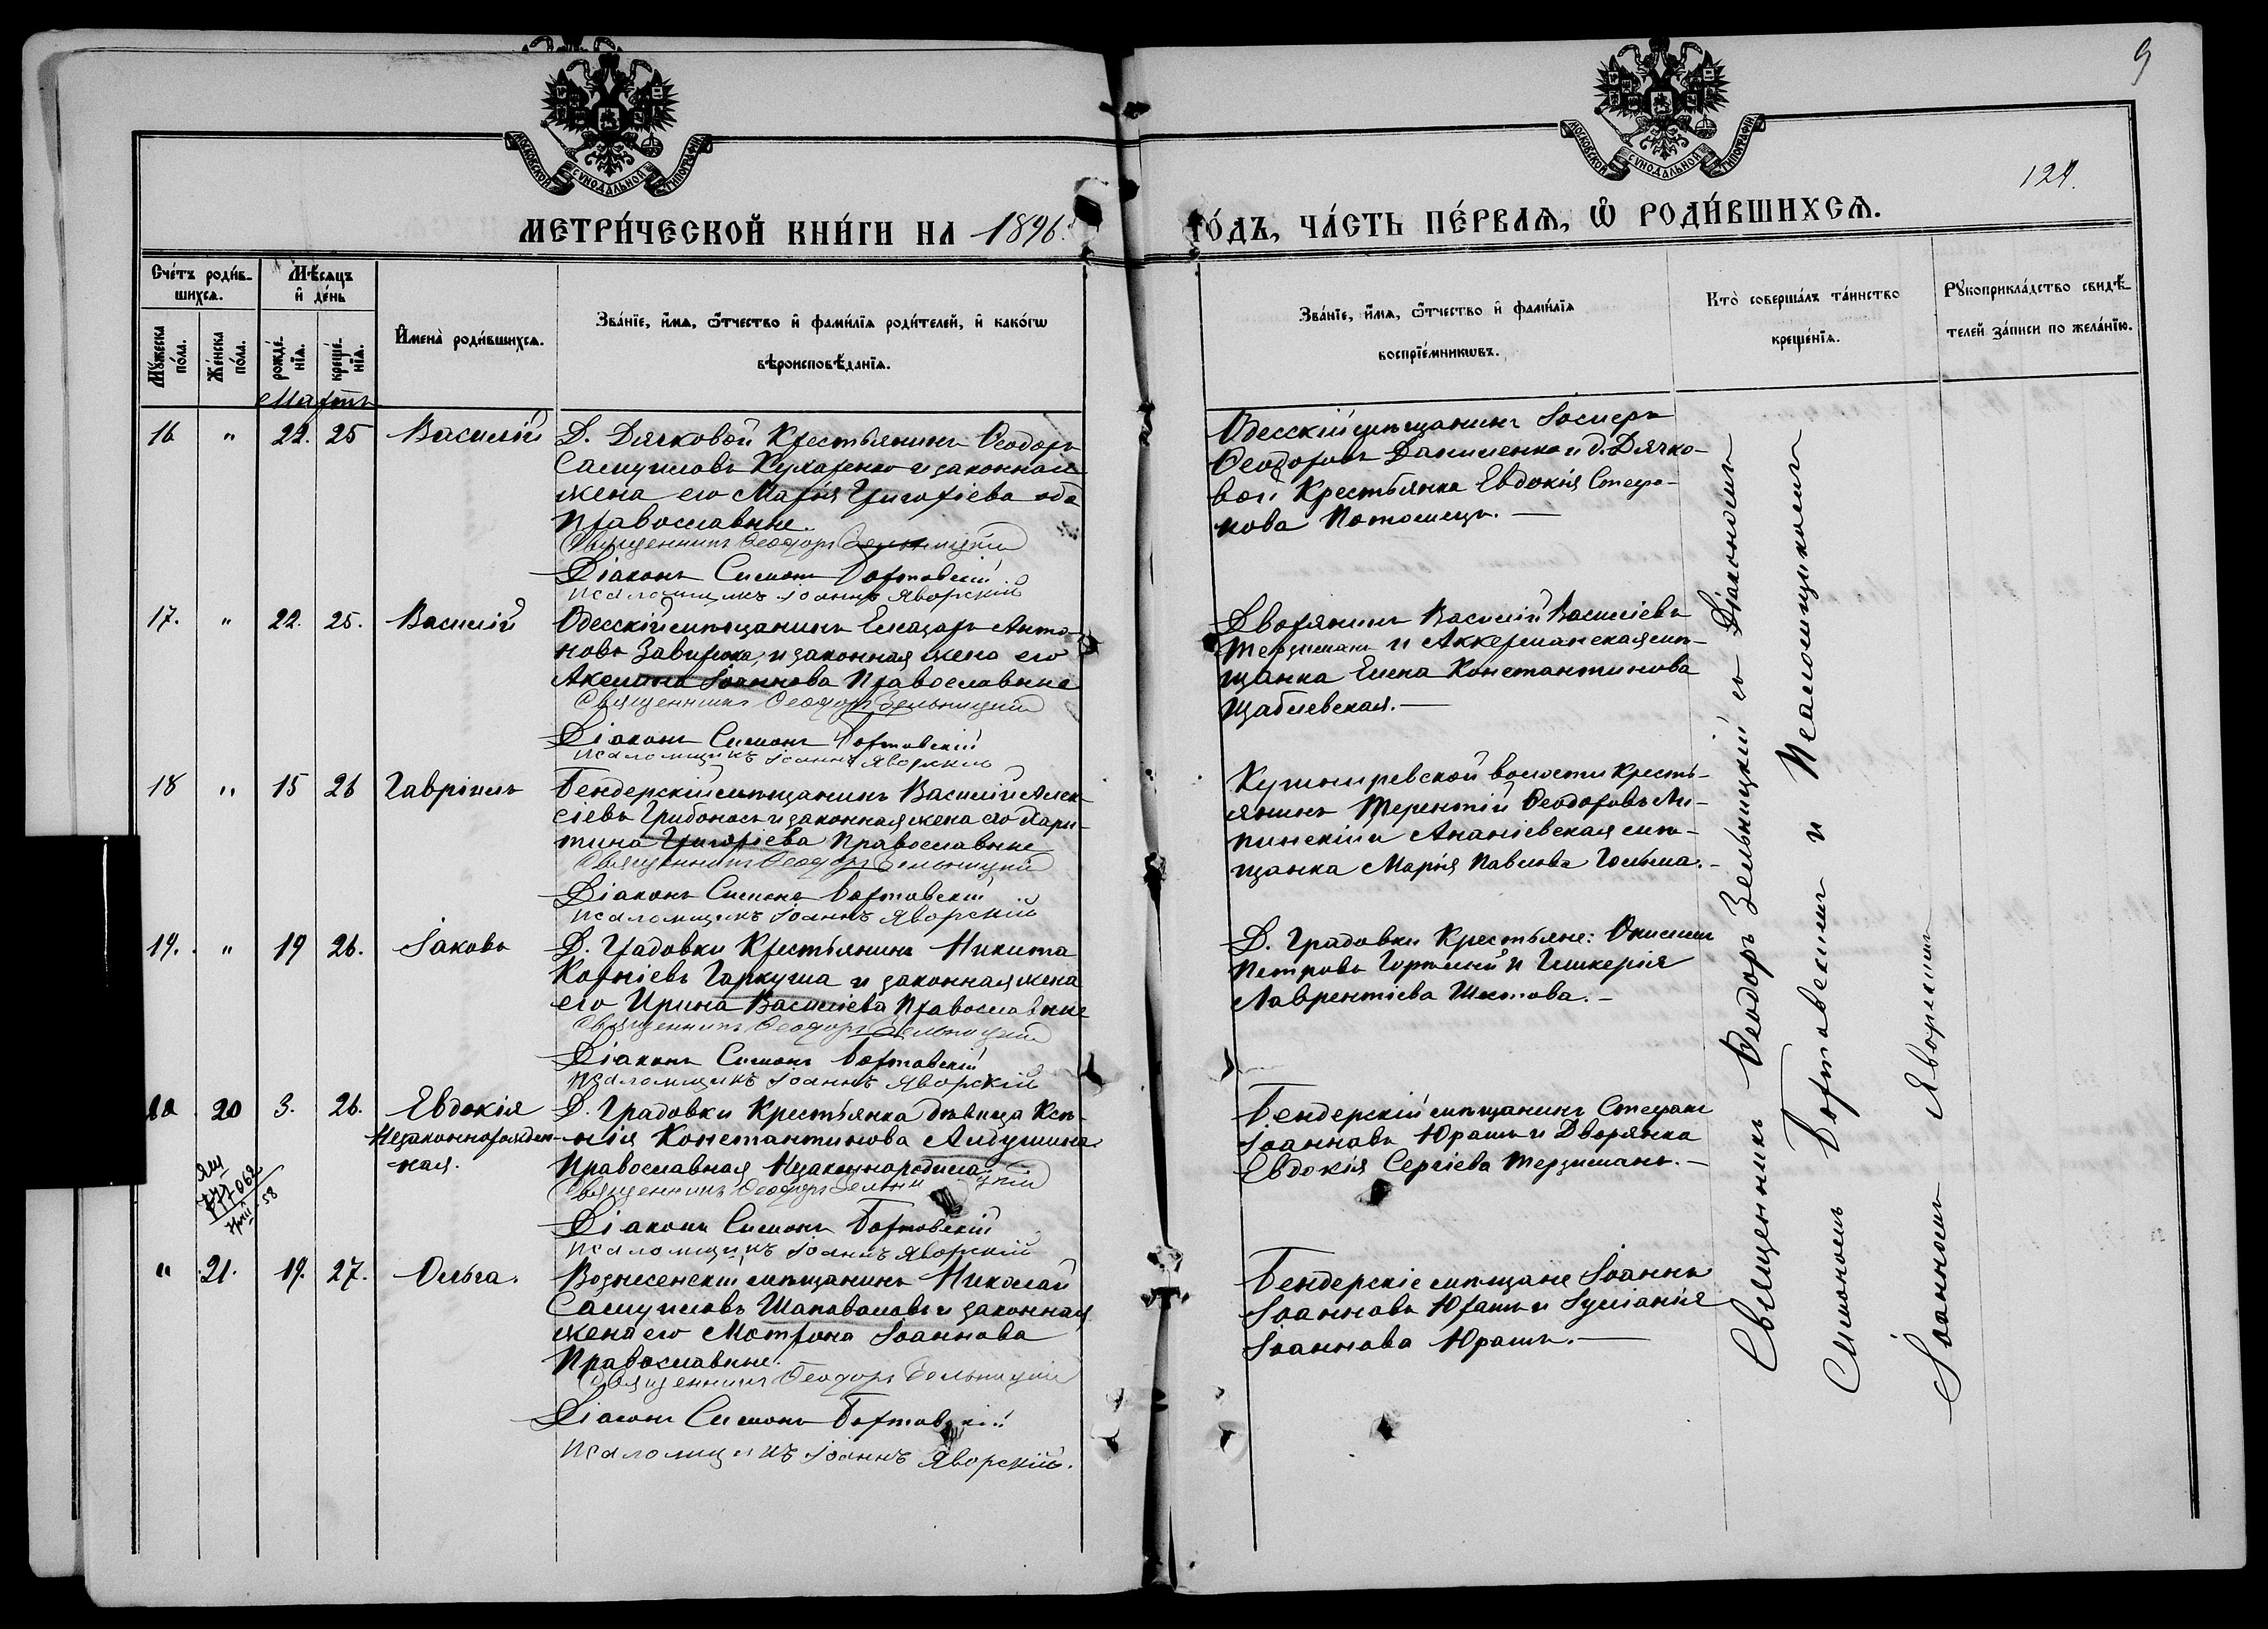 9
124.
МОСКОВСКОЙ СѴНОДАЛЬНОЙ ТИПОГРАФІИ
МОСКОВСКОЙ СѴНОДАЛЬНОЙ ТИПОГРАФІИ
МЕТРИ́ЧЕСКОЙ КНИ́ГИ НА 1896.
ГО́ДЪ, ЧА́СТЬ ПЕ́РВАѦ, Ѽ РОДИ́ВШИХСѦ.
Сче́тъ роди́в-
шихсѧ.
Мꙋ́жеска по́ла.
Же́нска по́ла.
Мѣ́сѧцъ
и҆ де́нь
рожде́-
нїѧ.
креще́-
нїѧ.
И҆мена̀ роди́вшихсѧ.
Зва́нїе, и҆́мѧ, ѻ҆́тчество и҆ фами́лїѧ роди́телей, и҆ како́гѡ
вѣроисповѣ́данїѧ.
Зва́нїе, и҆́мѧ, ѻ҆́тчество и҆ фами́лїѧ
воспрїе́мникѡвъ.
Кто̀ соверша́лъ та́инство
креще́нїѧ.
Рꙋкоприкла́дство свидѣ́-
телей за́писи по жела́нїю.
Мартъ
16 " 22. 25 Василій
Д. Дячковой Крестьянинъ Ѳеодоръ
Самуиловъ Кухаренко и законная
жена его Марія Григоріева оба
Православные.
Священникъ Ѳеодоръ Зельницкій
Діаконъ Симонъ Бортовскій
Псаломщикъ Іоаннъ Яворскій
Одесскій мѣщанинъ Іосифъ
Ѳеодоровъ Даниленко и д. Дячко-
вой Крестьянка Евдокія Стефа-
нова Потомецъ. —
17. " 22. 25. Василій
Одесскій мѣщанинъ Елеазаръ Анто-
новъ Завирюха, и законная жена его
Акелина Іоаннова Православные
Священникъ Ѳеодоръ Зельницкій
Діаконъ Симонъ Бортовскій
Псаломщикъ Іоаннъ Яворскій
Дворянинъ Василій Василіевъ
Терзиманъ и Аккерманская мѣ-
щанка Елена Константинова
Щаблевская. —
18 " 15 26 Гавріилъ
Бендерскій мѣщанинъ Василій Алек-
сіевъ Грибоносъ и законная жена его Хари-
тина Григоріева Православные
Священникъ Ѳеодоръ Зельницкій
Діаконъ Симонъ Бортовскій
Псаломщикъ Іоаннъ Яворскій
волости Кресть-
янинъ Терентій Ѳеодоровъ Ли-
пинскій и Ананіевская мѣ-
щанка Марія Павлова —
19. " 19 26. Іаковъ
Д. Градовки Крестьянинъ Никита
Корніевъ Гаркуша и законная жена
его Ирина Василіева Православные
Священникъ Ѳеодоръ Зельницкій
Діаконъ Симонъ Бортовскій
Псаломщикъ Іоаннъ Яворскій
Д. Градовки Крестьяне: Онисимъ
Петровъ и Гликерія
Лаврентіева Шестова. —
20 3. 26. Евдокія
Незаконнорожден-
ная.
Д. Градовки Крестьянка дѣвица Ксе-
нія Константинова Алдушина
Православная Незаконнородила
Священникъ Ѳеодоръ Зельницкій
Діаконъ Симонъ Бортовскій
Псаломщикъ Іоаннъ Яворскій
Бендерскій мѣщанинъ Стефанъ
Іоанновъ Юрашъ и Дворянка
Евдокія Сергіева Терзиманъ. —
" 21. 19. 27. Ольга.
Вознесенскій мѣщанинъ Николай
Самуиловъ Шаповаловъ и законная
жена его Мотрона Іоаннова
Православные.
Священникъ Ѳеодоръ Зельницкій
Діаконъ Симонъ Бортовскій
Псаломщикъ Іоаннъ Яворскій.
Бендерскіе мѣщане Іоаннъ
Іоанновъ Юрашъ и Іуліанія
Іоаннова Юрашъ. —
Священникъ Ѳеодоръ Зельницкій съ Діакономъ
Симономъ Бортовскимъ и Псаломщикомъ
Іоанномъ Яворскимъ